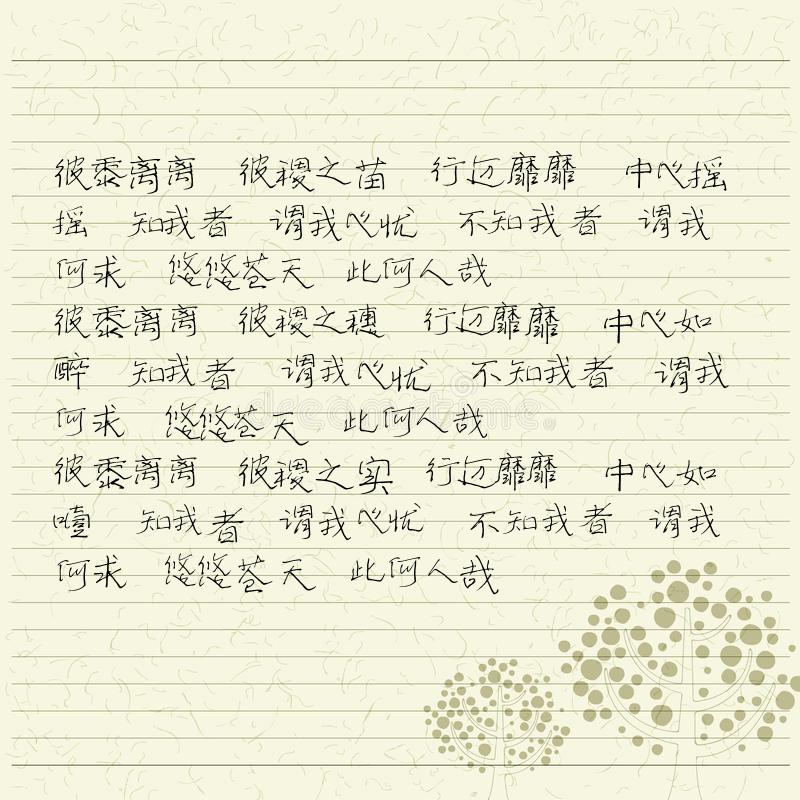 彼黍离离 彼稷之苗 行迈靡靡 中心摇
摇 知我者 谓我心忧 不知我者 谓我
何求 悠悠苍天 此何人哉
彼黍离离 彼稷之穗 行迈靡靡 中心如
醉 知我者 谓我心忧 不知我者 谓我
何求 悠悠苍天 此何人哉
彼黍离离 彼稷之实 行迈靡靡 中心如
噎 知我者 谓我心忧 不知我者 谓我
何求 悠悠苍天 此何人哉
dreamstime.com